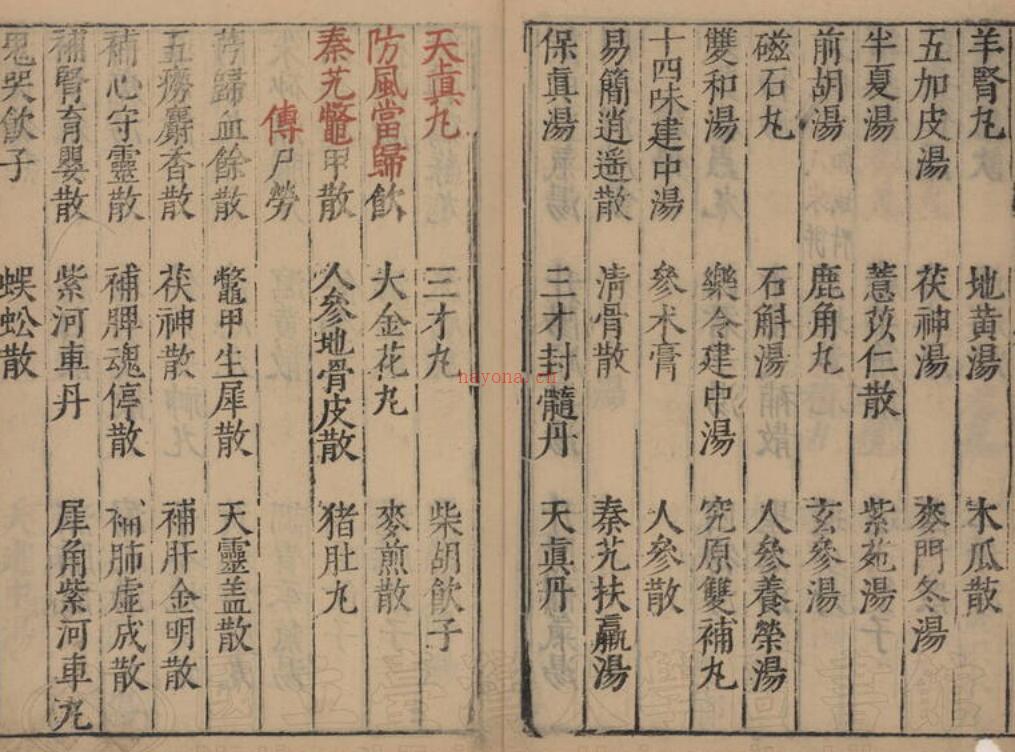 羊腎丸 地黃湯 木瓜散
五加皮湯 茯神湯 麥門冬湯
半夏湯 薏苡仁散 紫菀湯
前胡湯 鹿角丸 玄參湯
磁石丸 石斛湯 人參養榮湯
雙和湯 樂令建中湯 究原雙補丸
十四味建中湯 參朮膏 人參散
易簡逍遥散 清骨散 秦艽扶羸湯
保眞湯 三才封髓丹 天眞丹
天眞丸 三才丸 柴胡飲子
防風當歸飲 大金花丸 麥煎散
秦艽鼈甲散 人參地骨皮散 猪肚丸
傳尸勞
芎歸血餘散 鼈甲生犀散 天靈盖散
五癆麝香散 茯神散 補肝金明散
補心守靈散 補脾魂停散 補肺虛成散
補腎育嬰散 紫河車丹 犀角紫河車丸
鬼哭飲子 蜈蚣散
nayona.cn